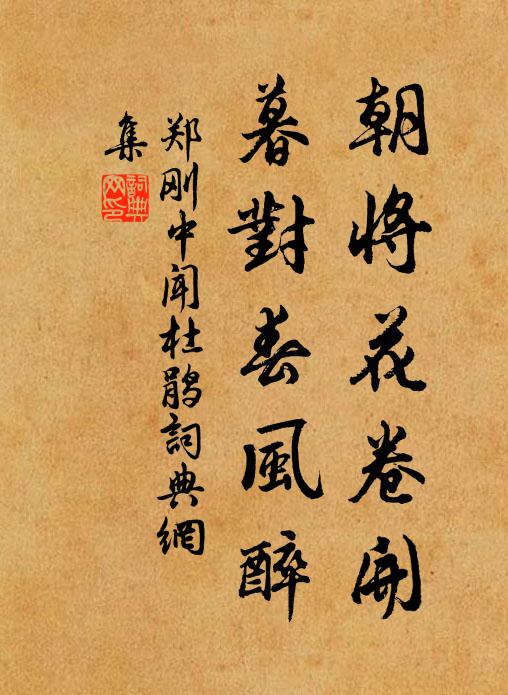 朝將花卷開
暮對春風醉
郑刚中闻杜鹃詞典網
集
詞典网印